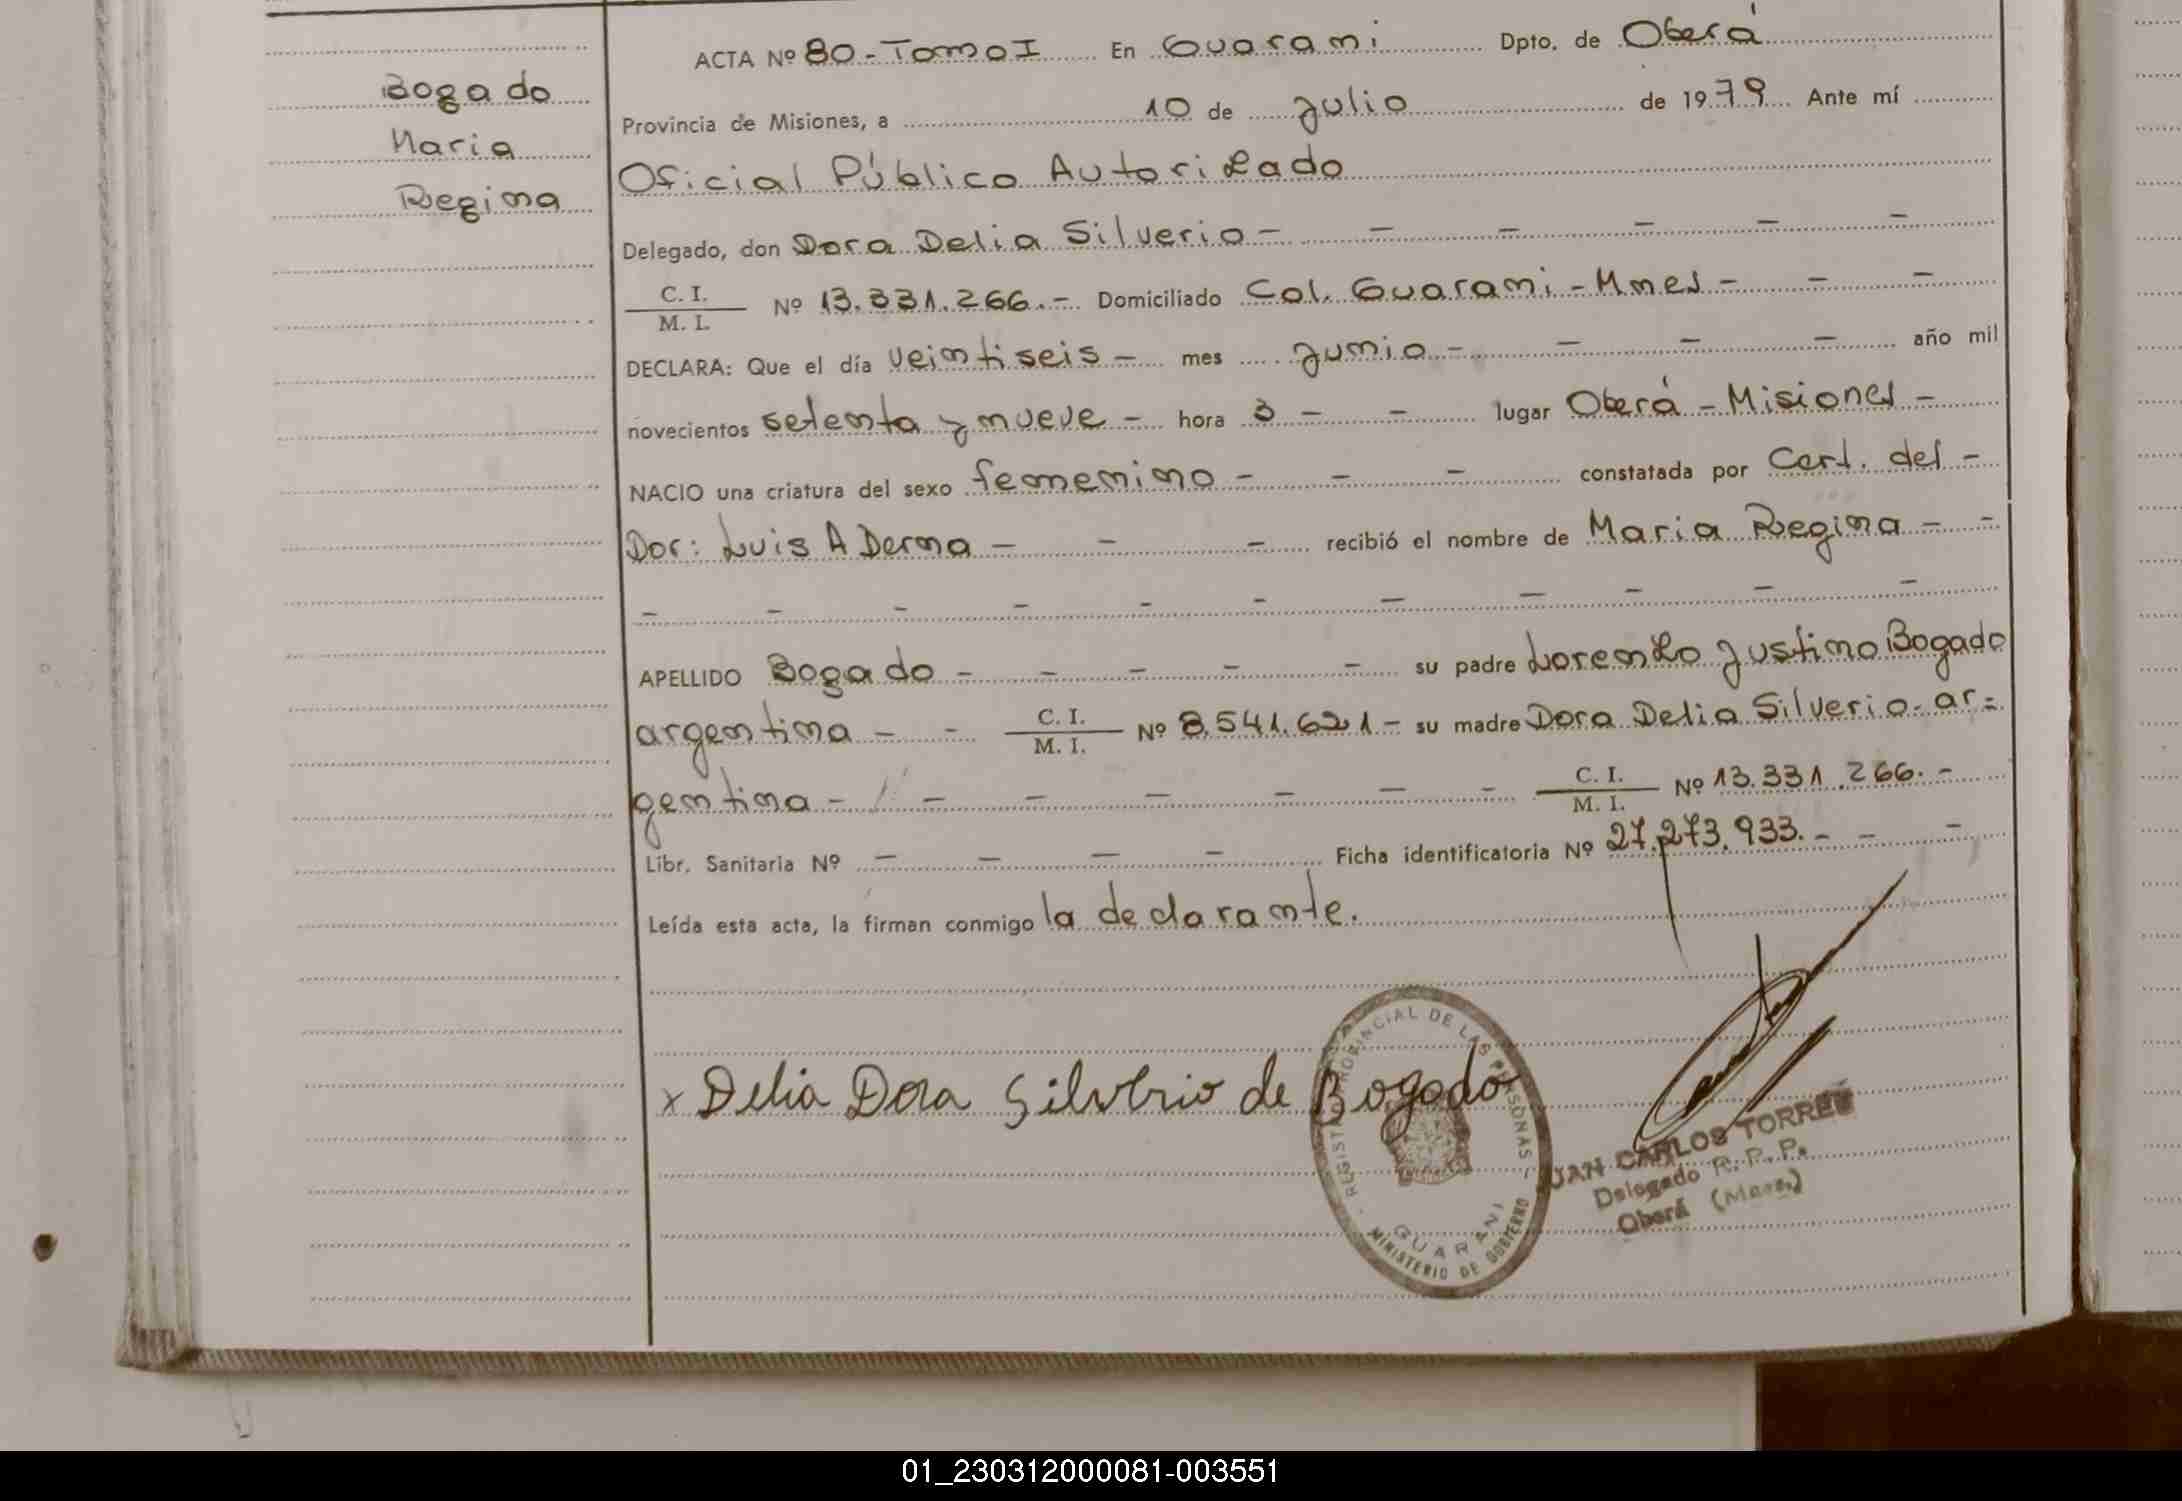 Bogado
Maria
Regina
ACTA Nº 80 - Tomo I En Guarani Dpto. de Oberá
Provincia de Misiones, a 10 de Julio de 1979 Ante mí
Oficial Público Autorizado
Delegado, don Dora Delia Silverio -
C. I.
M. I.
Nº 13.331.266.- Domiciliado Col. Guarani - Mnes -
DECLARA: Que el día veintiseis - mes Junio - año mil
novecientos setenta y nueve - hora 3 - lugar Oberá - Misiones -
NACIO una criatura del sexo femenino - constatada por Cert. del -
Dor: Luis A Derna - recibió el nombre de Maria Regina -
APELLIDO Bogado - su padre Lorenzo Justino Bogado
argentina - C. I.
M. I.
Nº 8.541.621 - su madre Dora Delia Silverio - ar=
gentina - C. I.
M. I.
Nº 13.331.266.-
Libr. Sanitaria Nº - Ficha identificatoria Nº 27.273.933.-
Leída esta acta, la firman conmigo la declarante.
x Delia Dora Silverio de Bogado
REGISTRO PROVINCIAL DE LAS PERSONAS
GUARANI
MINISTERIO DE GOBIERNO
JUAN CARLOS TORRES
Delegado R. P. P.
Oberá (Mnes.)
01_230312000081-003551